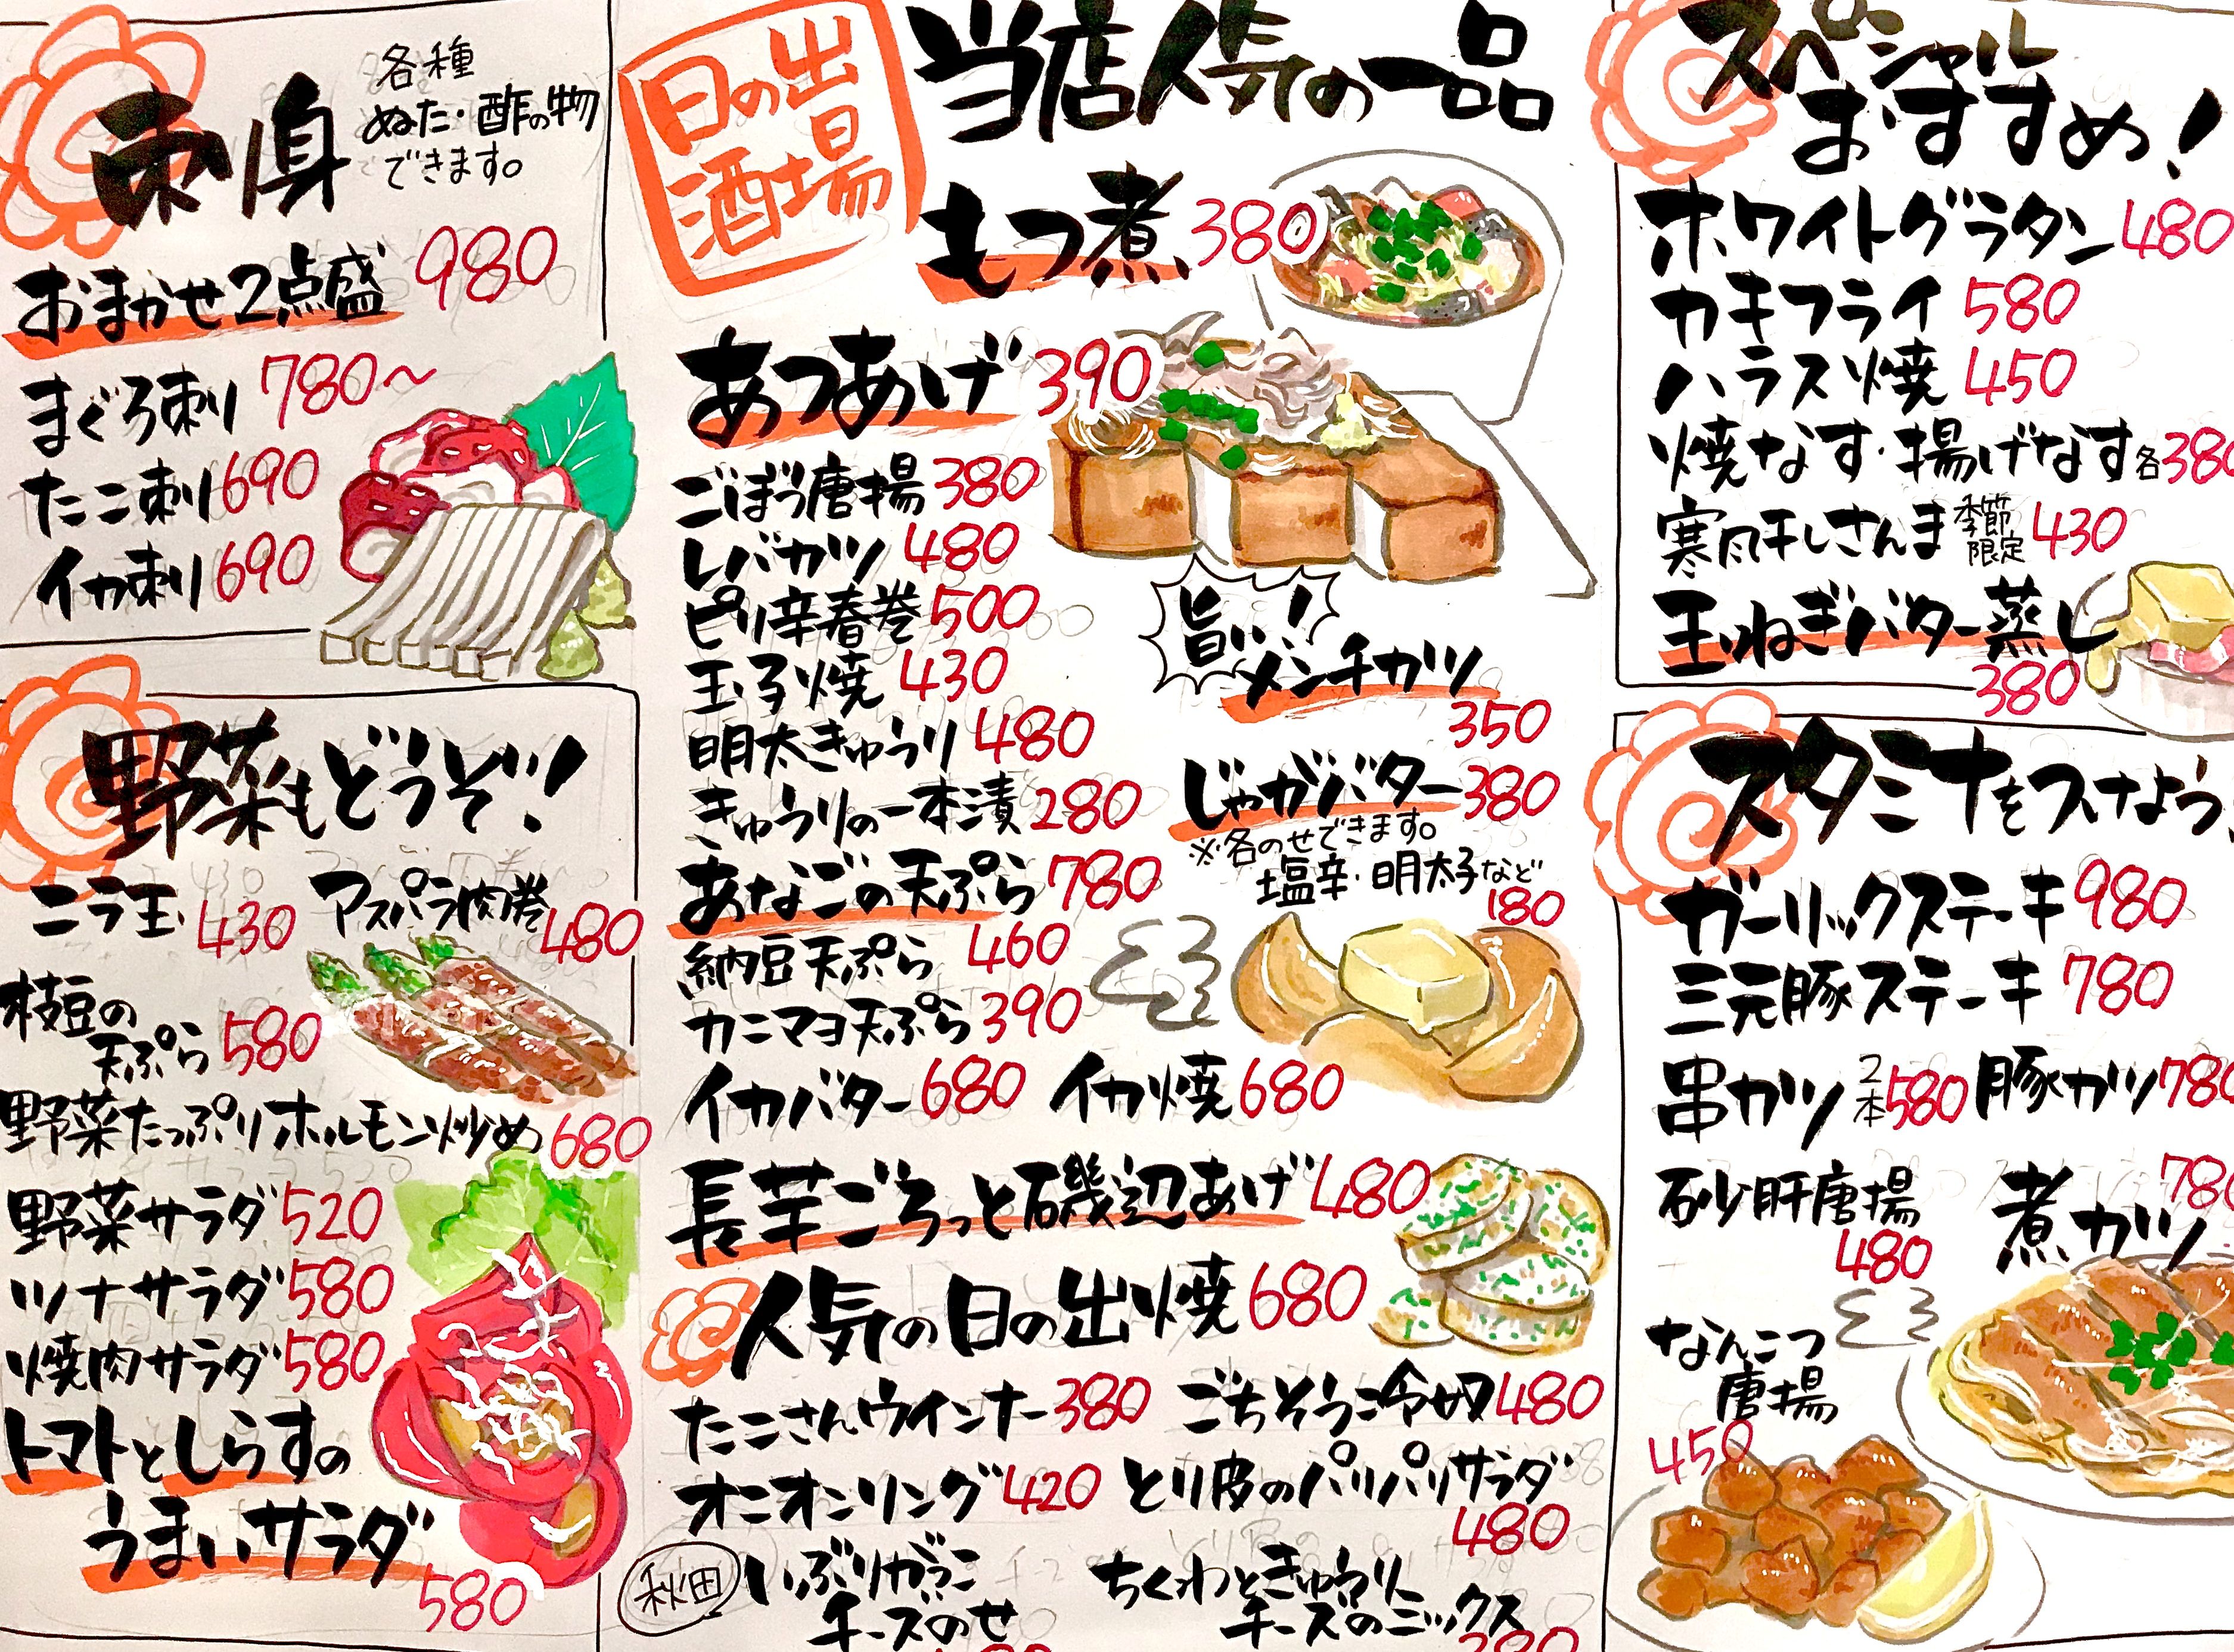 刺身
各種
ぬた・酢の物
できます。
おまかせ2点盛 980
まぐろ刺 780〜
たこ刺 690
イカ刺 690
野菜もどうぞ!
ニラ玉 430
アスパラ肉巻 480
枝豆の
天ぷら 580
野菜たっぷりホルモン炒め 680
野菜サラダ 520
ツナサラダ 580
焼肉サラダ 580
トマトとしらすの
うまいサラダ
580
日の出
酒場
当店人気の一品
もつ煮 380
あつあげ 390
ごぼう唐揚 380
レバカツ 480
ピリ辛春巻 500
玉子焼 430
明太きゅうり 480
きゅうりの一本漬 280
あなごの天ぷら 780
納豆天ぷら 460
カニマヨ天ぷら 390
イカバター 680 イカ焼 680
旨い!
メンチカツ
350
じゃがバター 380
※各のせできます。
塩辛・明太子など
180
長芋ごろっと磯辺あげ 480
人気の日の出焼 680
たこさんウインナー 380 ごちそう冷奴 480
オニオンリング 420 とり皮のパリパリサラダ
480
秋田 いぶりがっこ
チーズのせ
ちくわときゅうり
チーズのミックス
スペシャル
おすすめ!
ホワイトグラタン 480
カキフライ 580
ハラス焼 450
焼なす・揚げなす各380
寒風干しさんま 季節限定 430
玉ねぎバター蒸し
380
スタミナをつけなよう
ガーリックステーキ 980
三元豚ステーキ 780
串カツ 2本 580 豚カツ 780
砂肝唐揚
480
煮カツ 780
なんこつ
唐揚
450